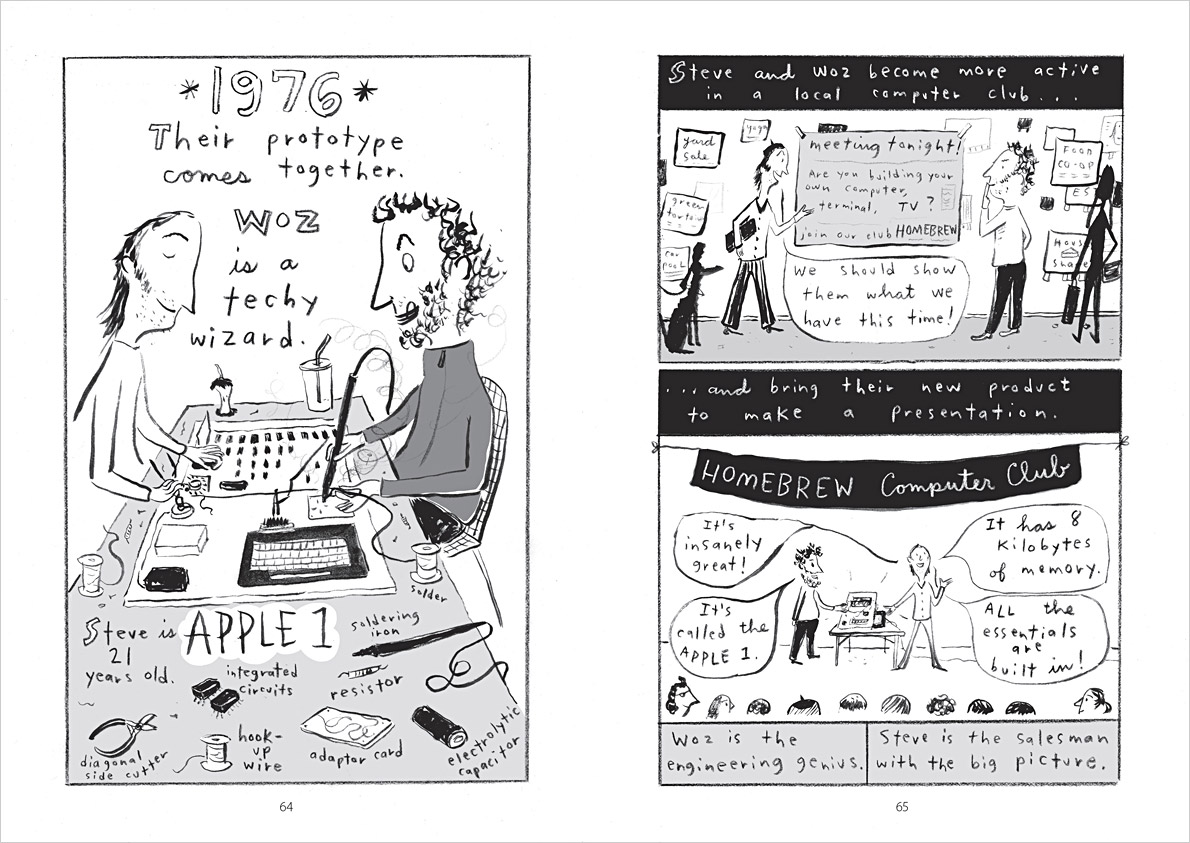 * 1976 *
Their prototype
comes together.
WOZ
is a
techy
wizard.
solder
APPLE 1
Steve is
21
years old.
soldering
iron
integrated
circuits
resistor
diagonal
side cutter
hook-
up
wire
adaptor card
electrolytic
capacitor
64
Steve and Woz become more active
in a local computer club...
yard
sale
yoga
green
tortoise
car
pool
meeting tonight!
Are you building your
own computer,
terminal, TV?
join our club HOMEBREW
Food
CO-OP
ES
House
Share
We should show
them what we
have this time!
...and bring their new product
to make a presentation.
HOMEBREW Computer Club
It's
insanely
great!
It has 8
Kilobytes
of memory.
It's
called the
APPLE 1.
ALL the
essentials
are
built in!
Woz is the
engineering genius.
Steve is the salesman
with the big picture.
65